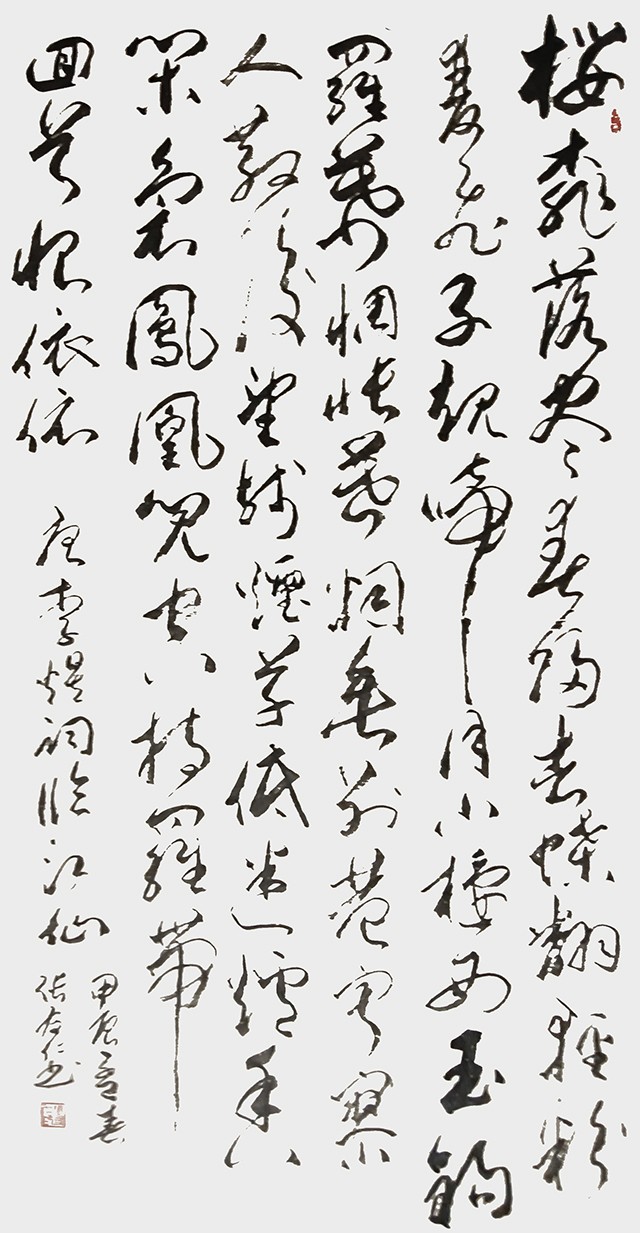 櫻桃落尽春歸去蝶翻輕粉
雙飛子規啼月小樓西玉鈎
羅幕惆悵暮烟垂別巷寂寥
人散後望殘煙草低迷爐香
閑裊鳳凰兒空持羅帶
回首恨依依 唐李煜詞臨江仙
甲辰春